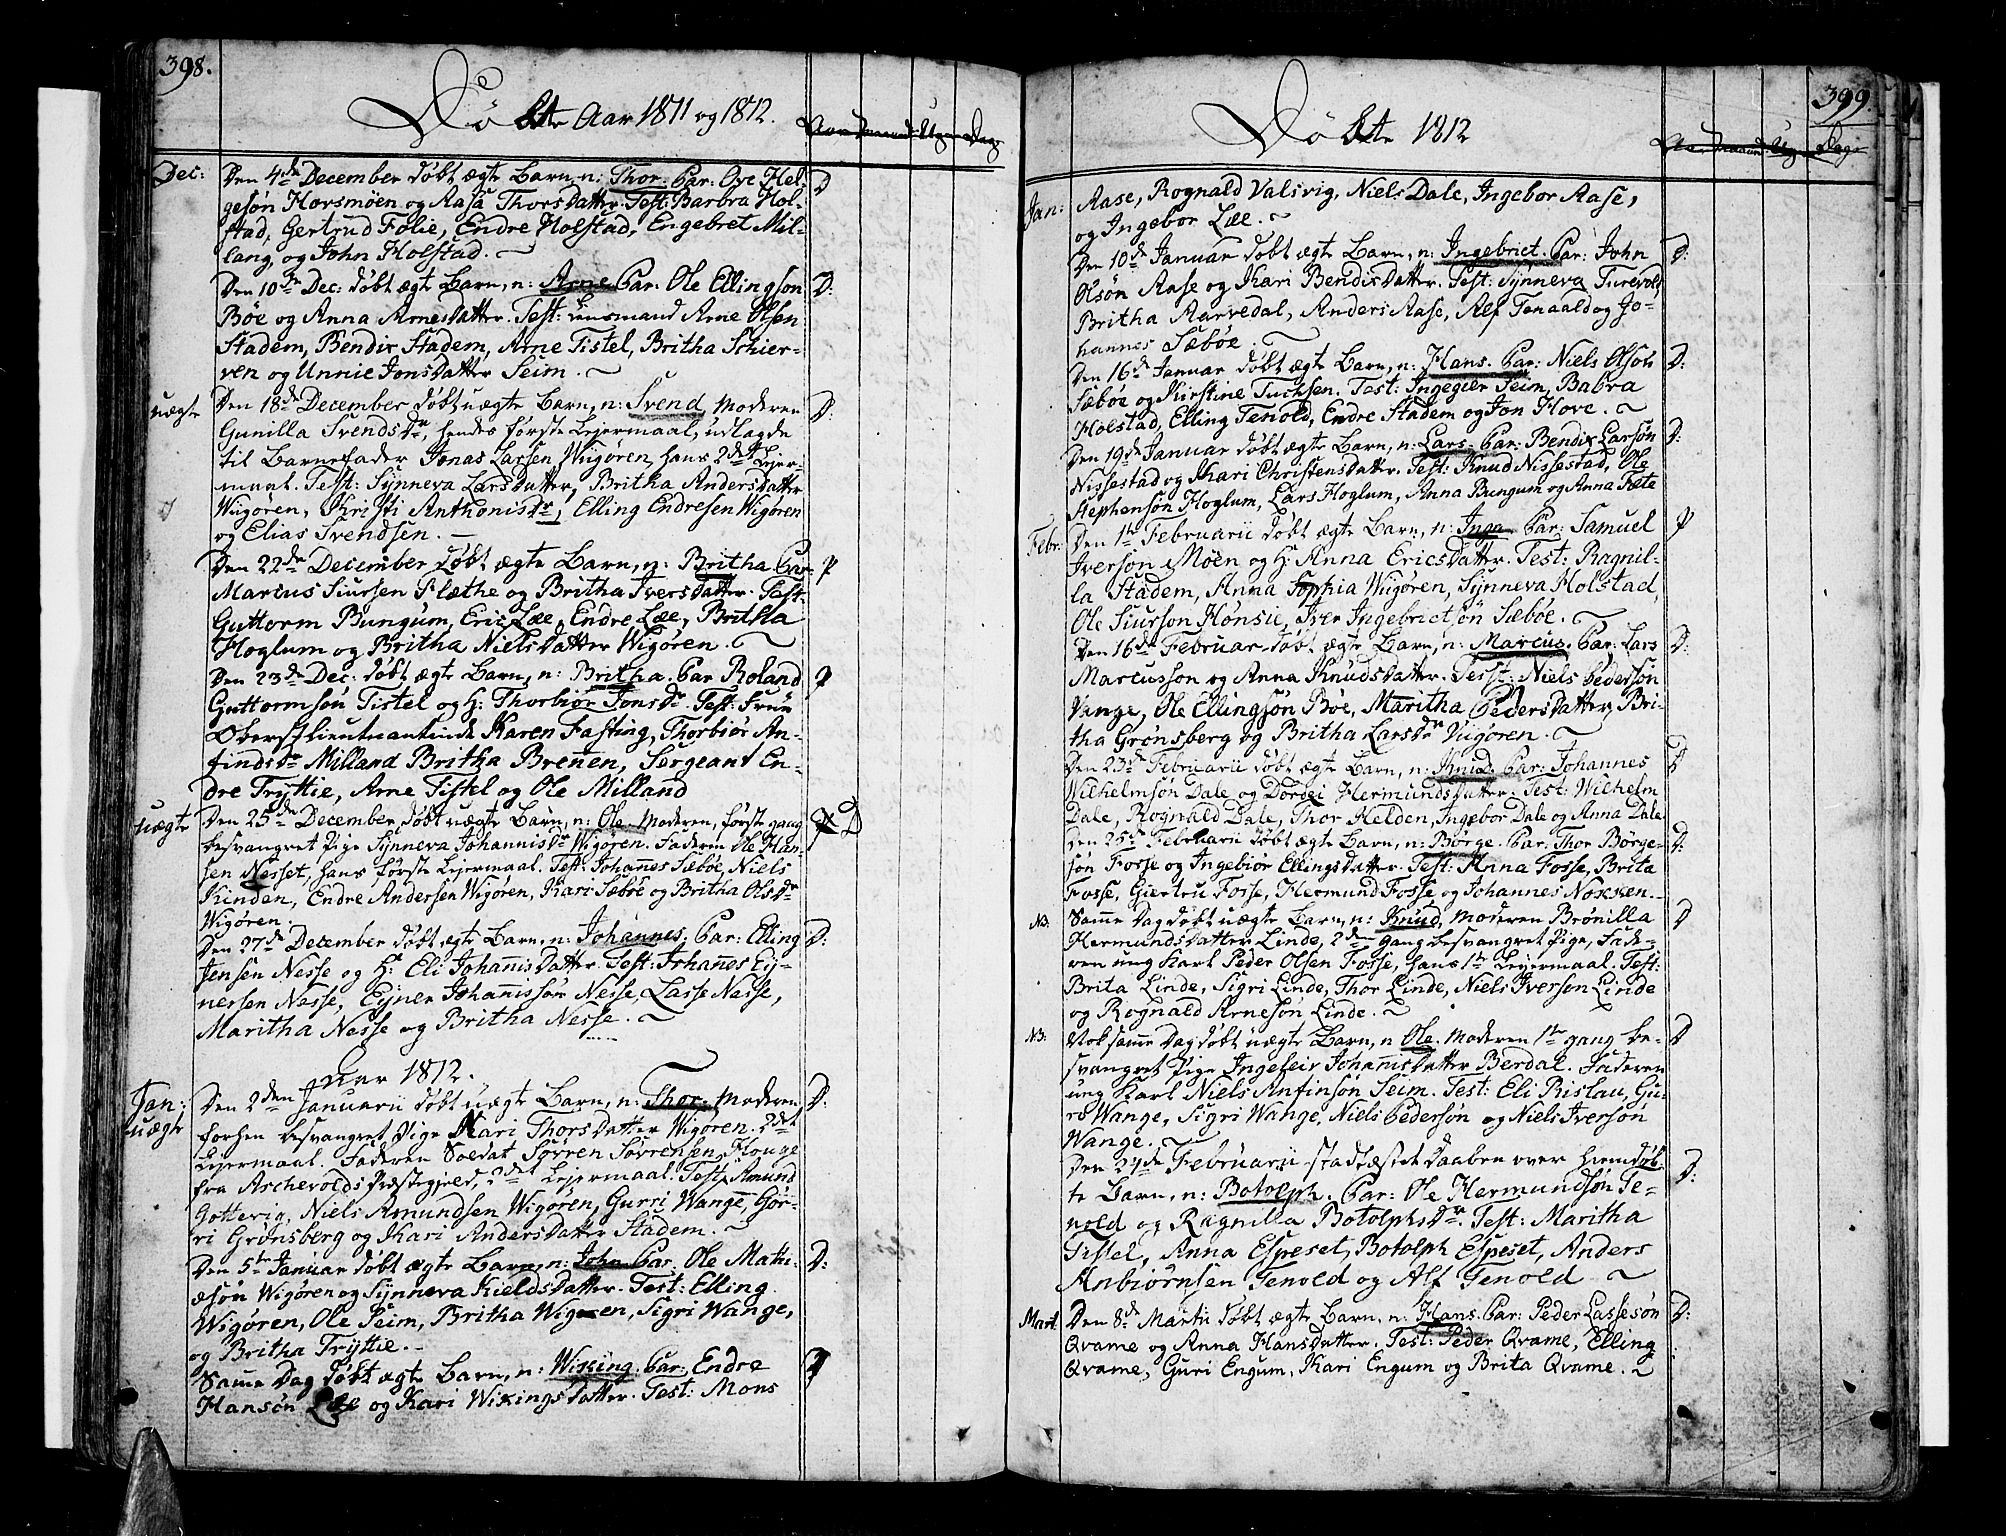 398.
Døbte Aar 1811 og 1812.
Dec:
Den 4de December døbt ægte Barn, n: Thor. Par: Ove Hel- D
gesøn Horsmöen og Aasa ThorsDatter. Test: Barbra Hol-
stad, Gertrud Folie, Endre Holstad, Engebret Mil-
lang, og John Holstad.
Den 10de Dec: døbt ægte Barn, n: Arne Par: Ole Ellingson D:
Böe og Anna ArnesDatter. Test: Lensmand Arne Olsen
Stadem, Bendix Stadem, Arne Tistel, Britha Schier-
ven og Unnie JonsDatter Seim.
uægte
Den 18de December døbt uægte Barn, n: Svend Moderen D:
Gunilla SvendsDr, hendes første Lejermaal, udlagde
til Barnefader Jonas Larsen Wiigøren, hans 2det Lejer-
maal. Test: Synneva LarsDatter, Britha AndersDatter
Wiigøren, Kristi AnthonisDr, Elling Endresen Wigøren
og Elias Svendsen.
Den 22de December døbt ægte Barn, n: Britha Par:
Marcus Siursen Flæthe og Britha IversDatter. Test:
Guttorm Bungum, Eric Læe, Endre Læe, Britha
Hoglum og Britha NielsDatter Wigøren.
Den 23de Dec: døbt ægte Barn, n: Britha. Par Roland
Guttormsøn Tistel og H: Thorbiør JonsDr. Test: Frue
Oberstlieutnantinde Karen Fasting, Thorbiør An-
findsDr Milland Britha Brenen, Sergeant En-
dre Tryttie, Arne Tistel og Ole Milland
uægte
Den 25de December døbt uægte Barn, n: Ole. Moderen, første gang D
besvangret Pige Synneva JohannisDr Wigøren. Faderen Ole Han-
sen Nesset, hans første Lejermaal. Test: Johañes Sæbøe, Niels
Kinden, Endre Andersen Wigøren, Kari Sæbøe og Britha OlsDr
Wigøren.
Den 27de December døbt ægte Barn, n: Johañnes, Par: Elling D:
Jensen Nesse og H: Eli JohañisDatter. Test: Johañes Ey-
nersen Nesse, Eyner Johañissøn Nesse, Lasse Nesse,
Maritha Nesse og Britha Nesse.
Aar 1812.
Jan:
uægte
Den 2den Januarii døbt uægte Barn, n: Thor. Moderen D:
forhen besvangret Pige Kari ThorsDatter Wigøren. 2det
Lejermaal. Faderen Soldat Sørren Sørrensen Houge
fra Ascherolds Præstegjeld, 2det Lejermaal. Test: Amund
Gotterig, Niels Amundsen Wigøren, Gurri Wange, Gør-
ri Grønsberg og Kari AndersDatter Stadem.
Den 5te Januar døbt ægte Barn, n: John Par: Ole Mathi- D:
æsøn Wigøren og Synneva KieldsDatter. Test: Elling
Wigøren, Ole Seim, Britha Wigøren, Sigri Wange,
og Britha Tryttie.
Samme Dag døbt ægte Barn, n: Wiking. Par: Endre
Hansøn Læe og Kari WikingsDatter. Test: Mons
399.
Døbte 1812
Jan:
Aase, Rognald Valsvig, Niels Dale, Ingebor Aase,
og Ingebor Læe.
Den 10de Januar døbt ægte Barn, n: Ingebrict. Par: John D:
Olsøn Aase og Kari BendixDatter. Test: Synneva Turevold,
Britha Aarvedal, Anders Aase, Alf Tenaald og Jo-
hannes Sæbøe.
Den 16de Januar døbt ægte Barn, n: Hans. Par: Niels Olsøn D:
Sæbøe og Kirstine Tuchsen. Test: Ingegier Seim, Babra
Holstad, Elling Tenold, Endre Stadem og Jon Hove.
Den 19de Januar døbt ægte Barn, n: Lars. Par: Bendix Larsøn D:
Nissestad og Kari ChristensDatter. Test: Knud Nissestad, Ole
Stephensøn Hoglum, Lars Hoglum, Anna Bungum og Anna Fæte
Febr:
Den 1te Februarii døbt ægte Barn, n: Inga Par: Samuel
Iverson Møen og H: Anna EricsDatter. Test: Ragnil-
la Stadem, Anna Sophia Wiigøren, Synneva Holstad,
Ole Siurson Hønsie, Iver Ingebrictsøn Sæbøe.
Den 16de Februar døbt ægte Barn, n: Marcus. Par: Lars D:
Marcusson og Anna KnudsDatter. Test: Niels Pedersøn
Vange, Ole Ellingsøn Bøe, Maritha PedersDatter, Bri-
tha Grønsberg og Britha LarsDr Viigøren.
Den 23de Februarii døbt ægte Barn, n: Knud. Par: Johannes D
Wilhelmsøn Dale og Dordei HermundsDatter. Test: Wilhelm
Dale, Rognald Dale, Thor Helden, Ingebor Dale og Anna Dale
Den 25de Februarii døbt ægte Barn, n: Børge. Par: Thor Børge- D:
søn Fosse og Ingebiør EllingsDatter. Test: Anna Fosse, Brita
Fosse, Giertru Fosse, Hermund Fosse og Johannes Nokken.
NB.
Samme Dag døbt uægte Barn, n: Knud, Moderen Brønilla D
HermundsDatter Linde, 2den gang besvangret Pige, Fade-
ren ung Karl Peder Olsen Fosse, hans 1te Lejermaal. Test:
Brita Linde, Sigri Linde, Thor Linde, Niels Iverson Linde
og Rognald Arnesøn Linde.
NB.
Nok samme Dag døbt uægte Barn, n: Ole. Moderen 1te gang be- D
svangret Pige Ingeleir JohannisDatter Berdal. Faderen
ung Karl Niels Anfinsøn Seim. Test: Eli Rislau, Gu-
ro Wange, Sigri Wange, Niels Pedersøn og Niels Iversøn
Wange.
Den 27de Februarii stadfæstet Daaben over hiemdøb- D:
te Barn, n: Botolph. Par: Ole Hermundsøn Te-
nold og Ragnilla BotolphsDr. Test: Maritha
Tistel, Anna Espeset, Botolph Espeset, Anders
Anbiørnsen Tenold og Alf Tenold
Mart.
Den 8de Martii døbt ægte Barn, n: Hans. Par: Peder Lassesøn D:
Qvame og Anna HansDatter. Test: Peder Qvame, Elling
Qvame, Guri Engum, Kari Engum og Brita Qvame.